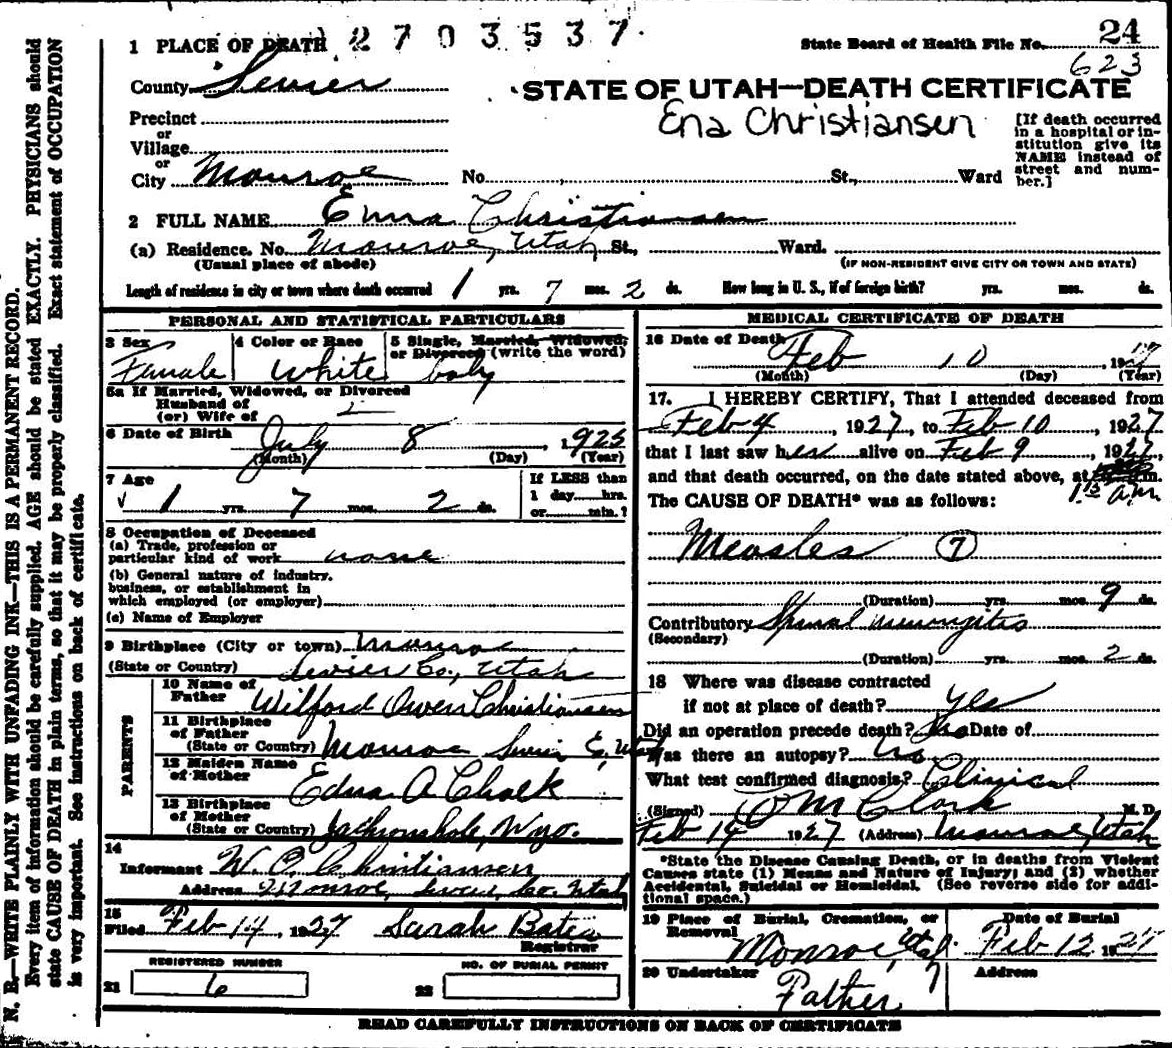 2703537.
1 PLACE OF DEATH
State Board of Health File No. 24
623
County Sevier
STATE OF UTAH—DEATH CERTIFICATE
Ena Christiansen
Precinct
or
Village
or
City Monroe No. St., Ward
[If death occurred
in a hospital or in-
stitution give its
NAME instead of
street and num-
ber.]
2 FULL NAME Enna Christiansen
(a) Residence. No. Monroe, Utah St., Ward.
(Usual place of abode) (IF NON-RESIDENT GIVE CITY OR TOWN AND STATE)
Length of residence in city or town where death occurred 1 yrs. 7 mos. 2 ds. How long in U. S., if of foreign birth? yrs. mos. ds.
PERSONAL AND STATISTICAL PARTICULARS
3 Sex Female
4 Color or Race White
5 Single, Married, Widowed,
or Divorced (write the word)
baby
5a If Married, Widowed, or Divorced
Husband of
(or) Wife of
6 Date of Birth July 8, 1925
(Month) (Day) (Year)
7 Age 1 yrs. 7 mos. 2 ds.
If LESS than
1 day hrs.
or min.?
8 Occupation of Deceased
(a) Trade, profession or
particular kind of work none
(b) General nature of industry,
business, or establishment in
which employed (or employer)
(c) Name of Employer
9 Birthplace (City or town) Monroe
(State or Country) Sevier Co., Utah
PARENTS
10 Name of
Father Wilford Owen Christiansen
11 Birthplace
of Father
(State or Country) Monroe Sevier Co, Utah
12 Maiden Name
of Mother Edna A Chalk
13 Birthplace
of Mother
(State or Country) Jacksonhole, Wyo.
14
Informant W. O. Christiansen
Address Monroe, Sevier Co. Utah
15
Filed Feb 14, 1927 Sarah Bates
Registrar
REGISTERED NUMBER
21 6
NO. OF BURIAL PERMIT
22
MEDICAL CERTIFICATE OF DEATH
16 Date of Death Feb 10, 1927
(Month) (Day) (Year)
17. I HEREBY CERTIFY, That I attended deceased from
Feb 4, 1927, to Feb 10, 1927
that I last saw her alive on Feb 9, 1927,
and that death occurred, on the date stated above, at m.
1 15 a.m.
The CAUSE OF DEATH* was as follows:
Measles 7
(Duration) yrs. mos. 9 ds.
Contributory Spinal meningitis
(Secondary)
(Duration) yrs. mos. 2 ds.
18 Where was disease contracted
if not at place of death? yes
Did an operation precede death? No Date of
Was there an autopsy? No
What test confirmed diagnosis? Clinical
(Signed) M Clark M. D.
Feb 14 1927 (Address) Monroe, Utah
*State the Disease Causing Death, or in deaths from Violent
Causes state (1) Means and Nature of Injury; and (2) whether
Accidental, Suicidal or Homicidal. (See reverse side for addi-
tional space.)
19 Place of Burial, Cremation, or
Removal Monroe, Utah
Date of Burial
Feb 12 1927
20 Undertaker Father
Address
READ CAREFULLY INSTRUCTIONS ON BACK OF CERTIFICATE
N. B.—WRITE PLAINLY WITH UNFADING INK—THIS IS A PERMANENT RECORD.
Every item of information should be carefully supplied. AGE should be stated EXACTLY. PHYSICIANS should
state CAUSE OF DEATH in plain terms, so that it may be properly classified. Exact statement of OCCUPATION
is very important. See instructions on back of certificate.